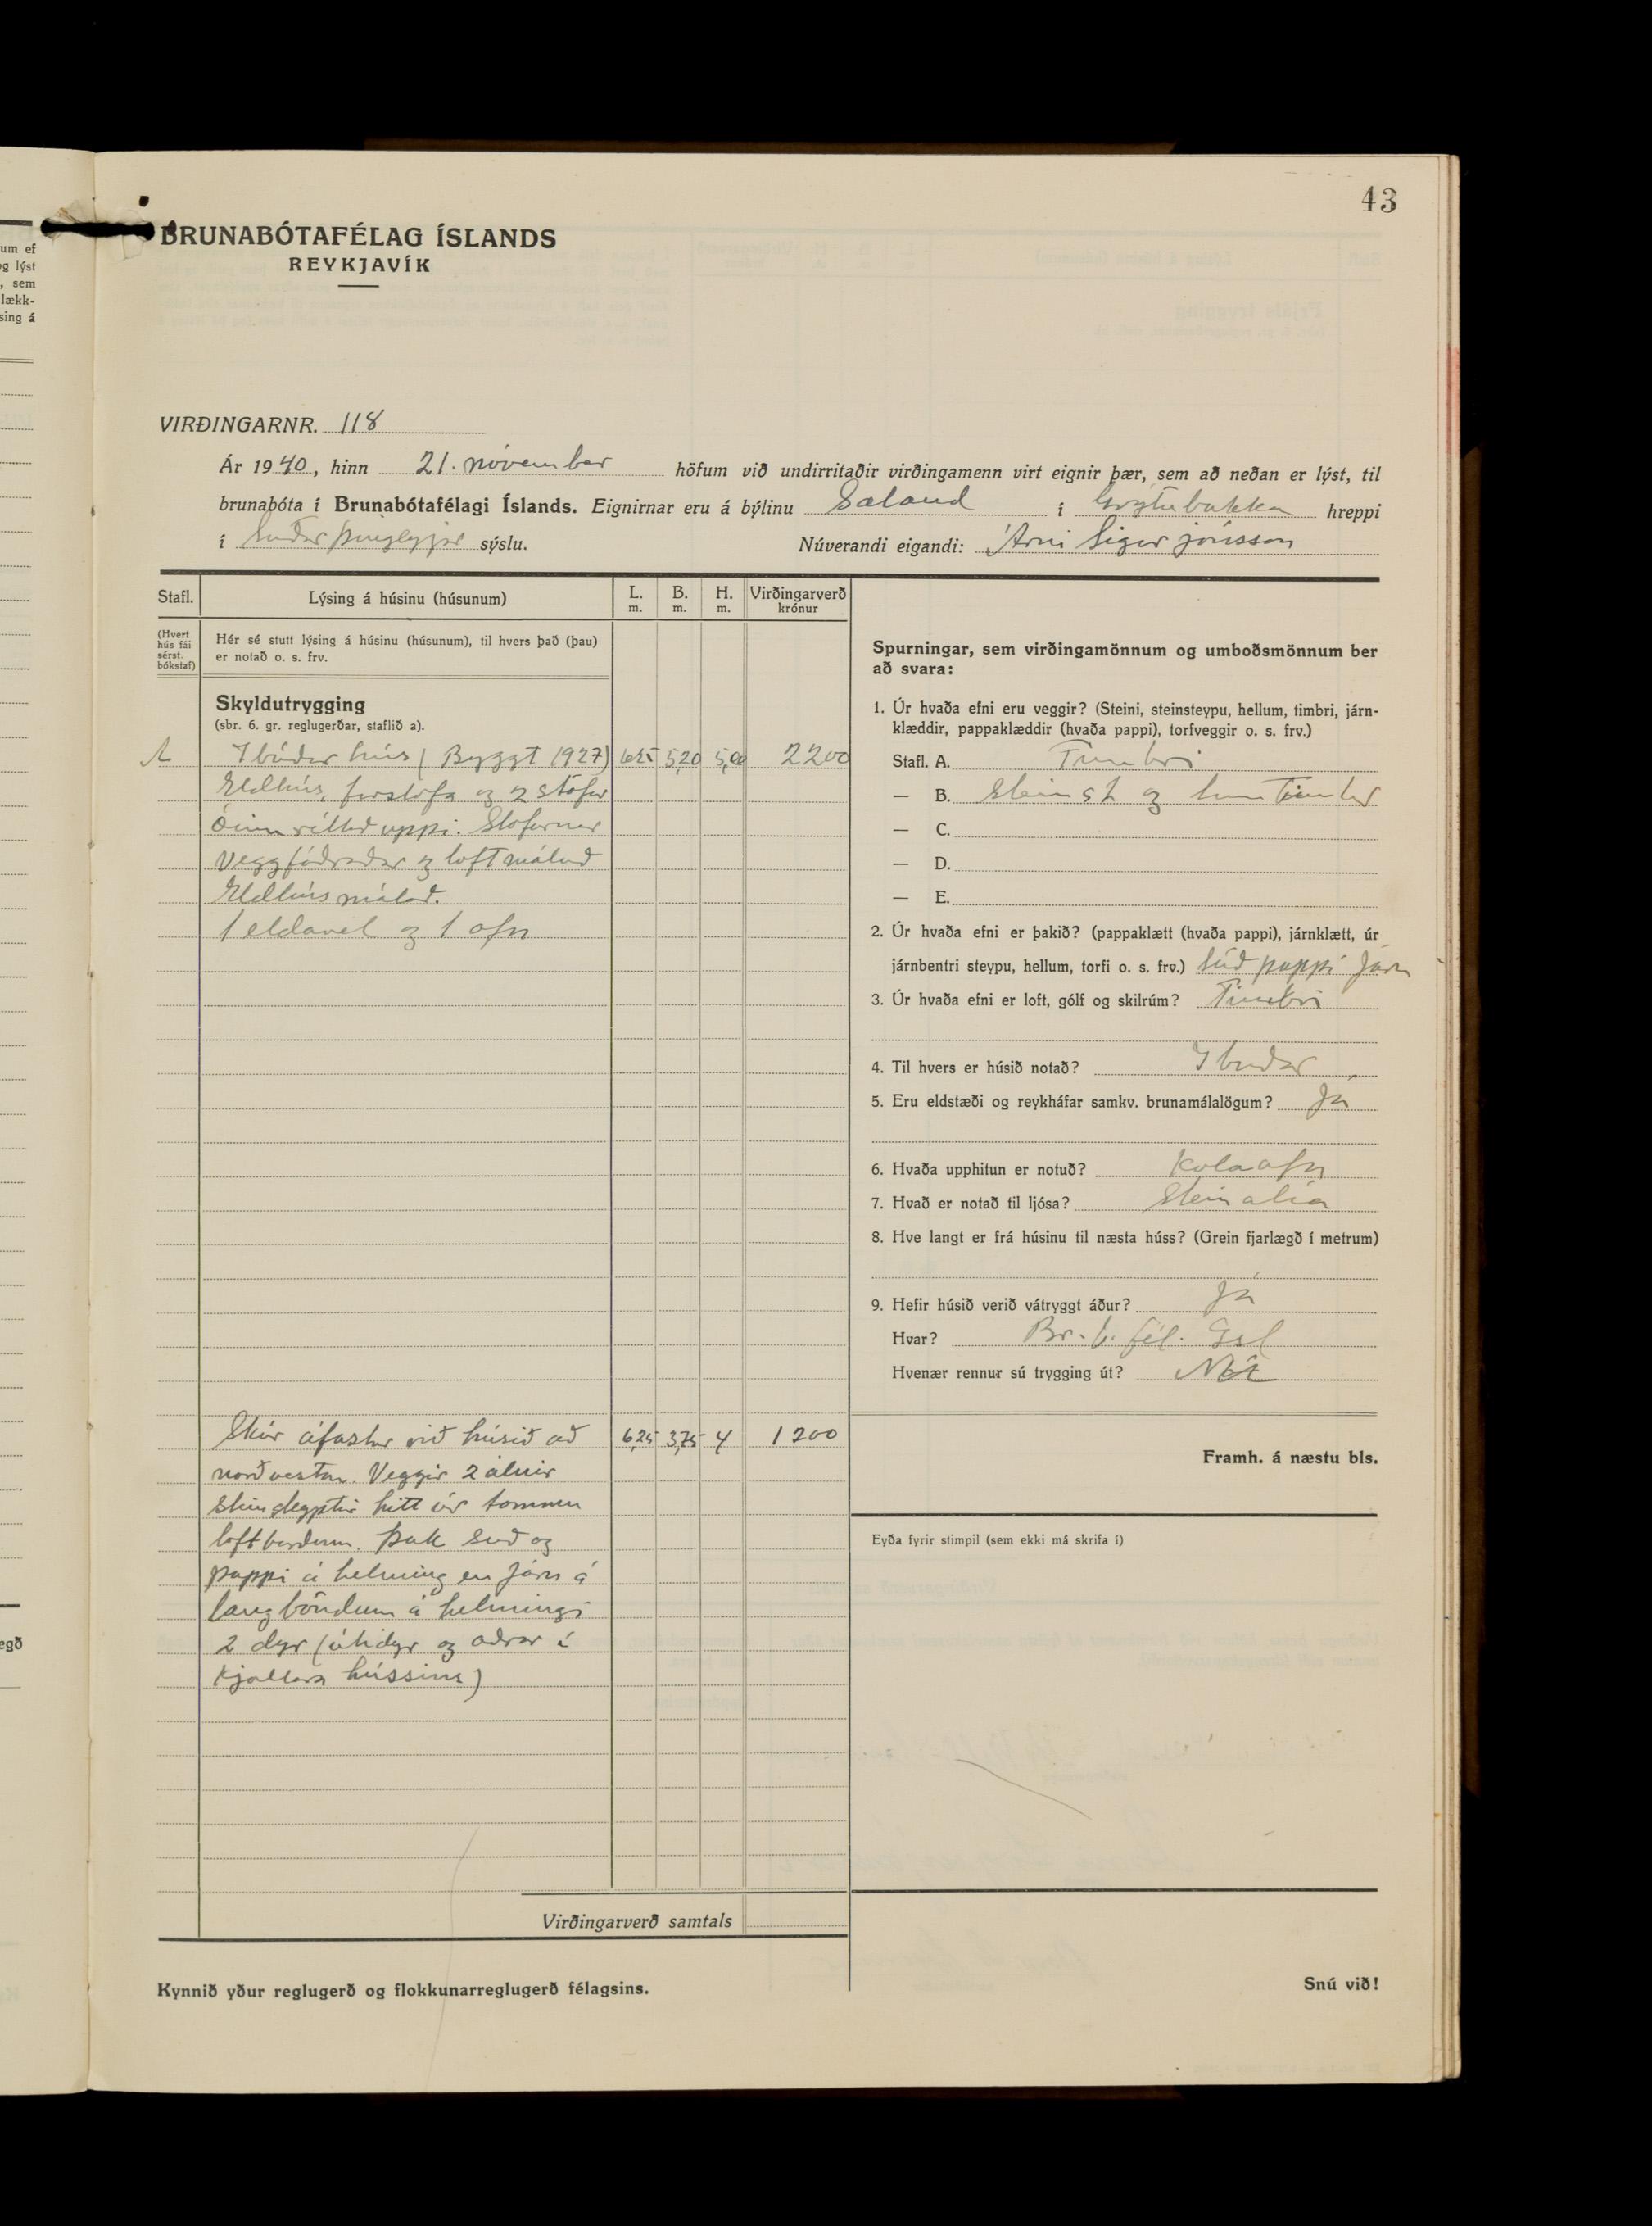 43
um ef
og lýst
, sem
lækk-
sing á
egð
BRUNABÓTAFÉLAG ÍSLANDS
REYKJAVÍK
VIRÐINGARNR. 118
Ár 1940, hinn 21. nóvember höfum við undirritaðir virðingamenn virt eignir þær, sem að neðan er lýst, til
brunabóta í Brunabótafélagi Íslands. Eignirnar eru á býlinu Sæland í Grýtubakka hreppi
í Suður Þingeyjar sýslu. Núverandi eigandi: Árni Sigurjónsson
Stafl. Lýsing á húsinu (húsunum) L. m. B. m. H. m. Virðingarverð krónur
(Hvert hús fái sérst. bókstaf)
Hér sé stutt lýsing á húsinu (húsunum), til hvers það (þau)
er notað o. s. frv.
Skyldutrygging
(sbr. 6. gr. reglugerðar, staflið a).
A Íbúðar hús (Byggt 1927) 6,25 5,20 5,00 2200
Eldhús, forstofa og 2 stofur
óinnréttað uppi. Stofurnar
Veggfóðraðar og loft málað
Eldhús málað.
1 eldavel og 1 ofn
Skúr áfastur við húsið að 6,25 3,75 4 1200
norðvestan. Veggir 2 álnir
steinsteyptir hitt úr tommu
loftborðum. Þak súð og
pappi á helming en járn á
langböndum á helmingi
2 dyr (útidyr og aðrar í
Kjallara hússins)
Virðingarverð samtals
Kynnið yður reglugerð og flokkunarreglugerð félagsins.
Spurningar, sem virðingamönnum og umboðsmönnum ber
að svara:
1. Úr hvaða efni eru veggir? (Steini, steinsteypu, hellum, timbri, járn-
klæddir, pappaklæddir (hvaða pappi), torfveggir o. s. frv.)
Stafl. A. Timbri
— B. Steinst og timbur
— C.
— D.
— E.
2. Úr hvaða efni er þakið? (pappaklætt (hvaða pappi), járnklætt, úr
járnbentri steypu, hellum, torfi o. s. frv.) súð pappi járn
3. Úr hvaða efni er loft, gólf og skilrúm? Timbri
4. Til hvers er húsið notað? Íbuðar
5. Eru eldstæði og reykháfar samkv. brunamálalögum? Já
6. Hvaða upphitun er notuð? Kolaofn
7. Hvað er notað til ljósa? Steinolía
8. Hve langt er frá húsinu til næsta húss? (Grein fjarlægð í metrum)
9. Hefir húsið verið vátryggt áður? Já
Hvar? Br.b.fél. Ísl
Hvenær rennur sú trygging út?
Framh. á næstu bls.
Eyða fyrir stimpil (sem ekki má skrifa í)
Snú við!